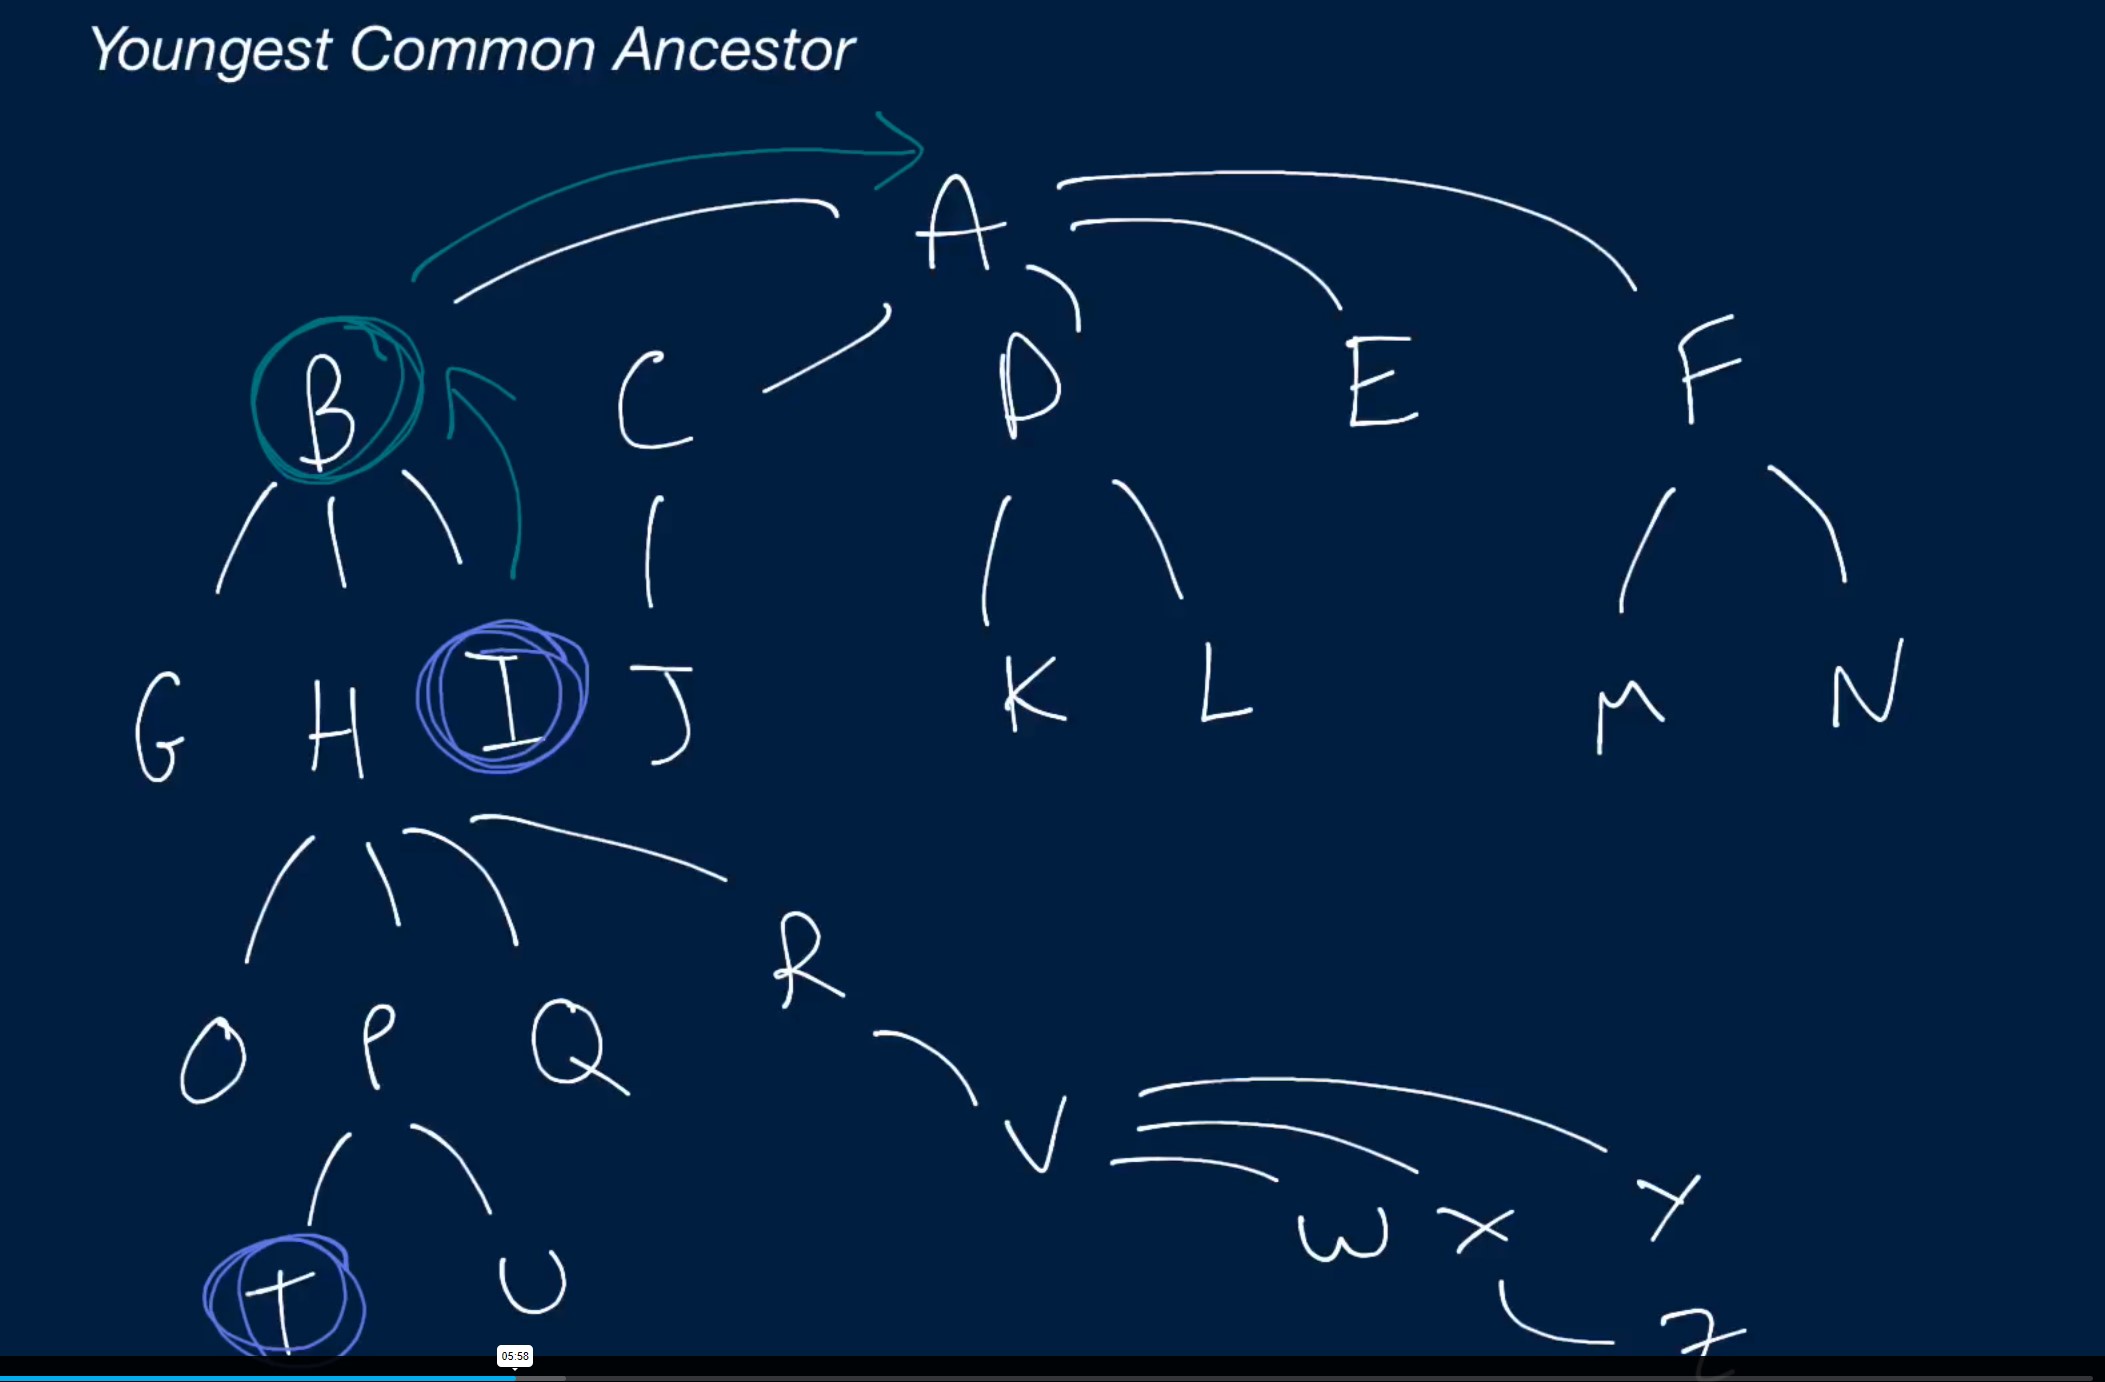 Youngest Common Ancestor
A
B C D E F
G H I J K L M N
O P Q R
T U V W X Y
Z
05:58